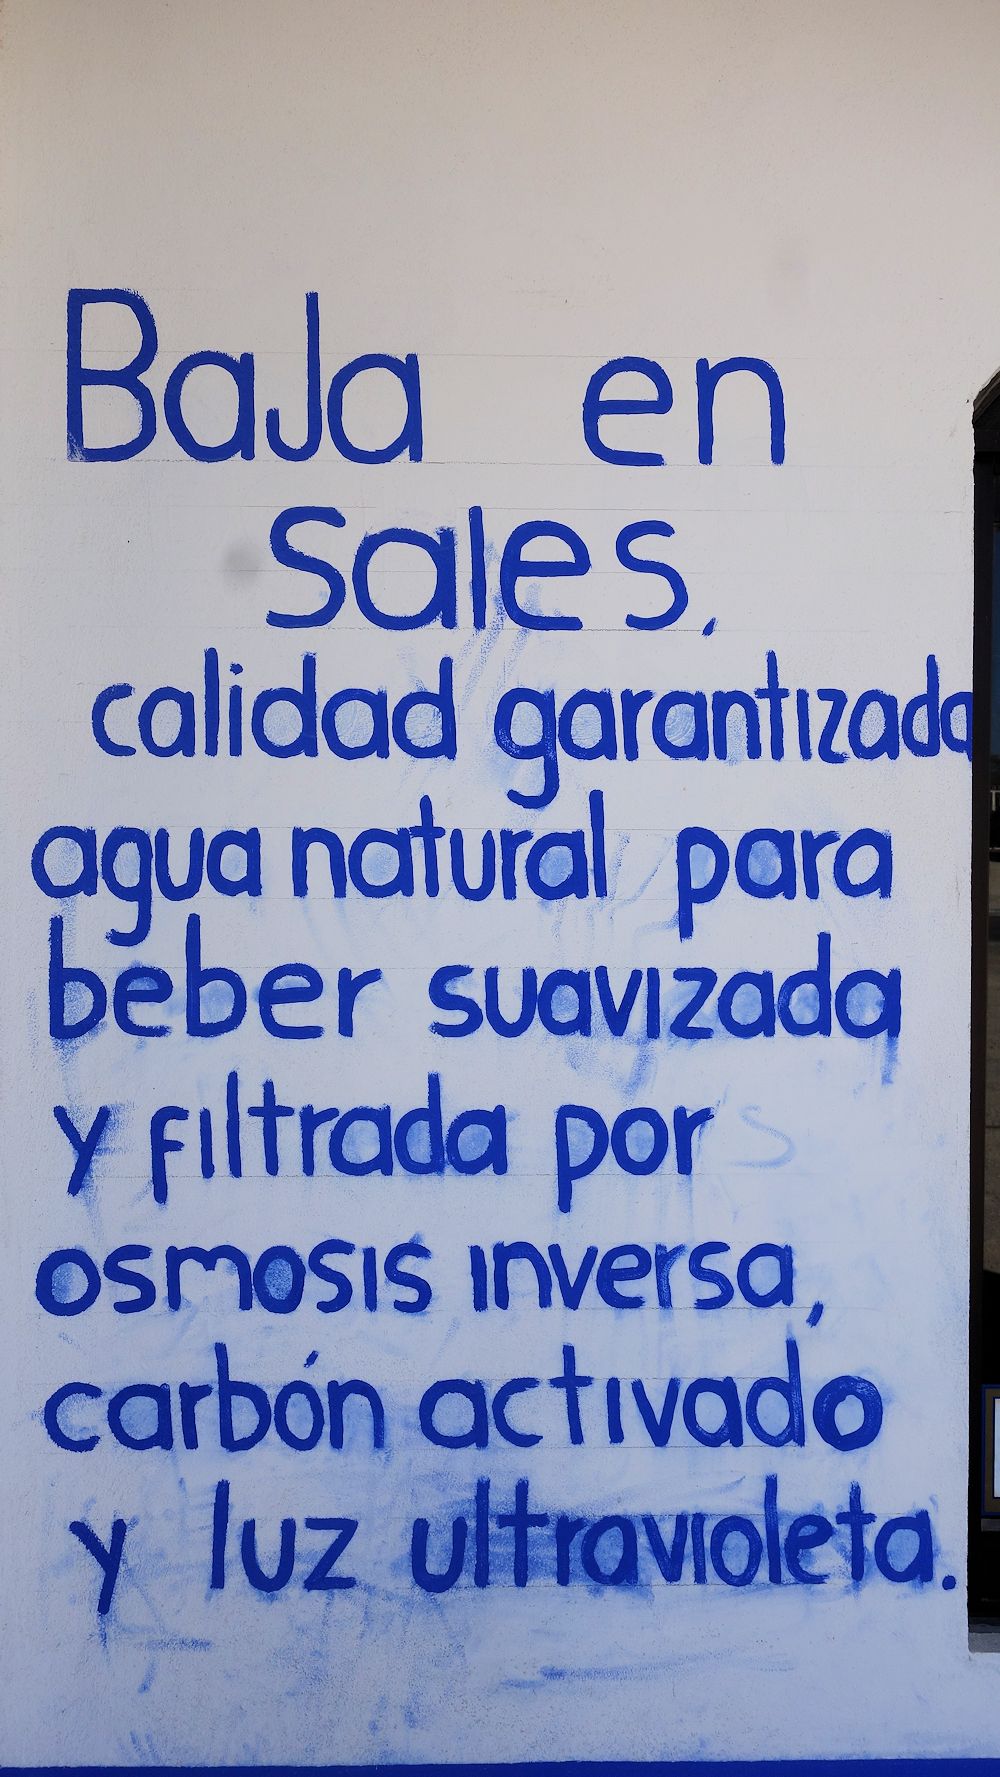 BaJa en
Sales,
calidad garantizada
agua natural para
beber suavizada
y filtrada por
osmosis inversa,
carbón activado
y luz ultravioleta.